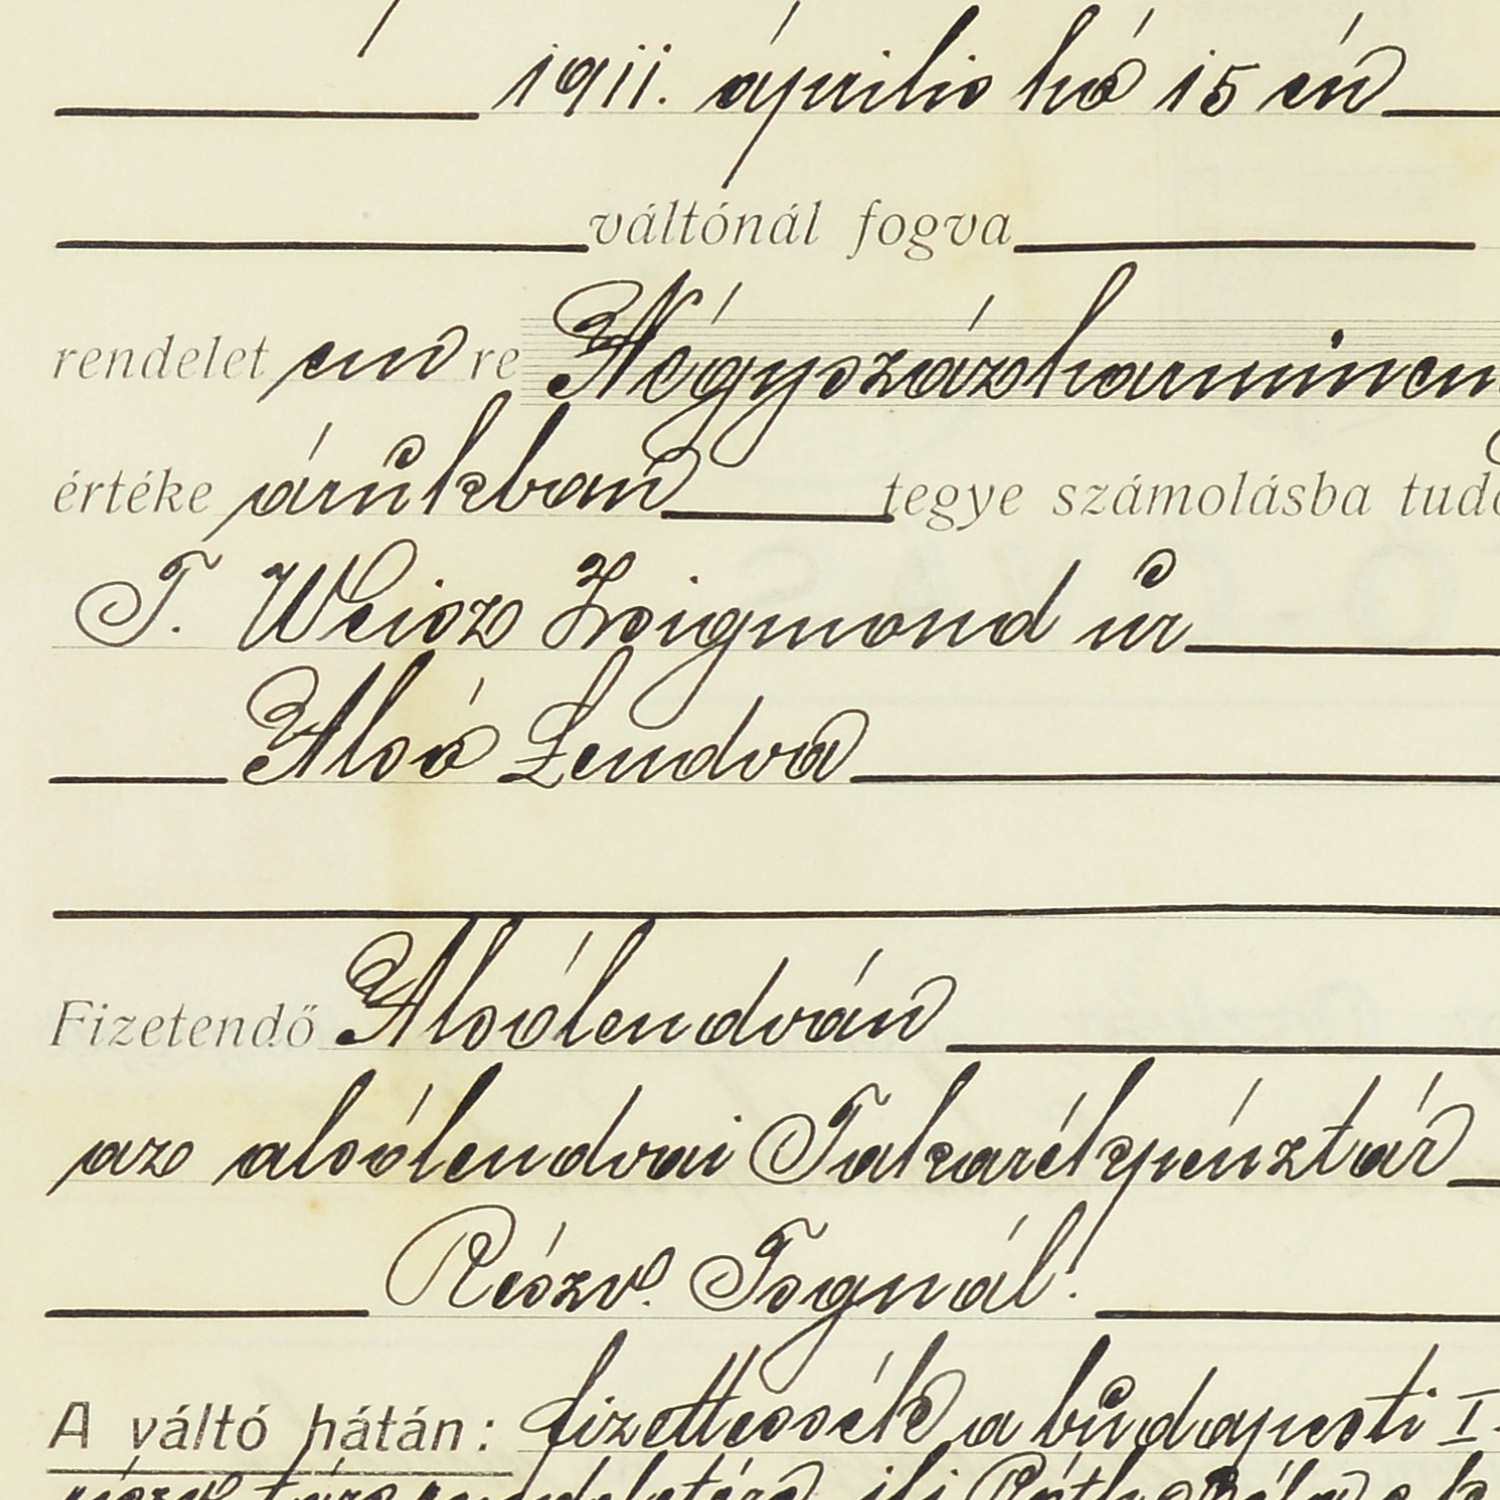 1911. április hó 15 én
váltónál fogva
rendelet em re Négyszázharmincn
értéke árúkban tegye számolásba tudó
T. Weisz Zsigmond úr
Alsó Lendva
Fizetendő Alsólendván
az alsólendvai Takarékpénztár
Részv. Tsgnál.
A váltó hátán: fizettessék a budapesti I.
részv. társ. rendeletére, ifj Róth Béla